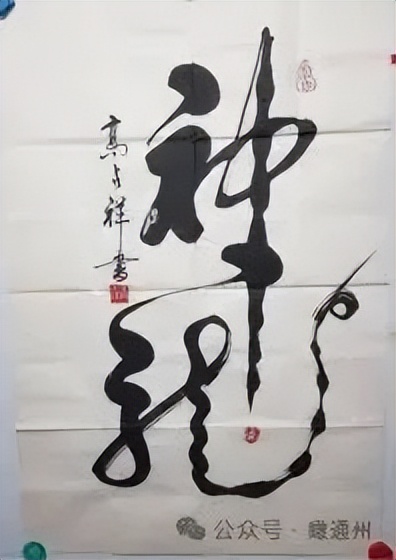 神龍
高占祥書
公众号 · 通州